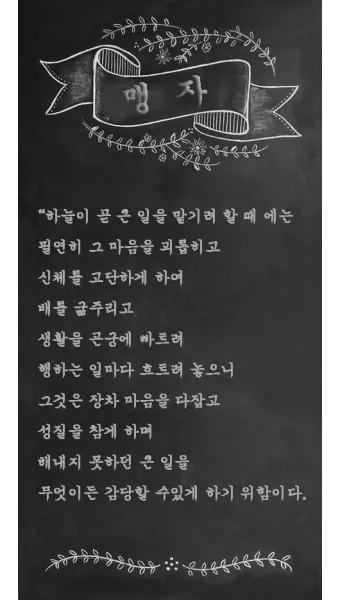 맹 자
“하늘이 곧 큰 일을 맡기려 할 때 에는
필연히 그 마음을 괴롭히고
신체를 고단하게 하여
배를 굶주리고
생활을 곤궁에 빠트려
행하는 일마다 흐트려 놓으니
그것은 장차 마음을 다잡고
성질을 참게 하며
해내지 못하던 큰 일을
무엇이든 감당할 수있게 하기 위함이다.